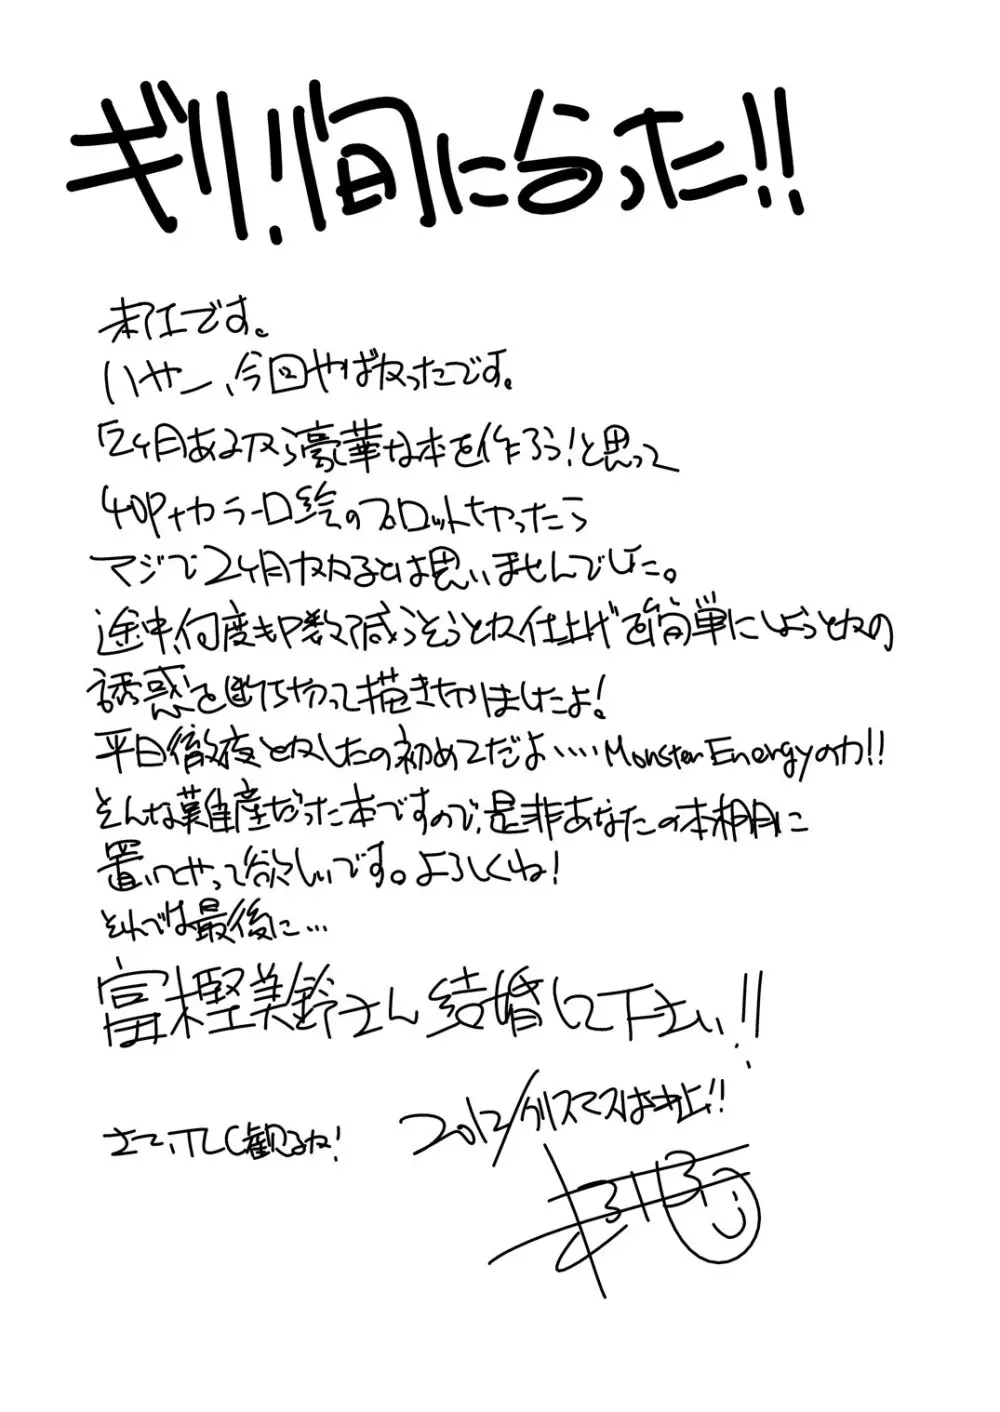 ギリ!間に合った!!
朱江です。
いやー、今回やばかったです。
「2ヶ月あるから豪華な本を作ろう!」と思って
40P+カラー口絵のプロットをやったら
マジで2ヶ月かかるとは思いませんでした。
途中、何度もP数減らそうとか仕上げを簡単にしようとかの
誘惑を断ち切って描ききりましたよ!
平日徹夜とかしたの初めてだよ‥‥MonsterEnergyの力!!
そんな難産だった本ですので、是非あなたの本棚に
置いてやって欲しいです。よろしくね!
それでは最後に…
富樫美鈴さん結婚して下さい!!
さて、TLC観るね!
2012/クリスマスは中止!!